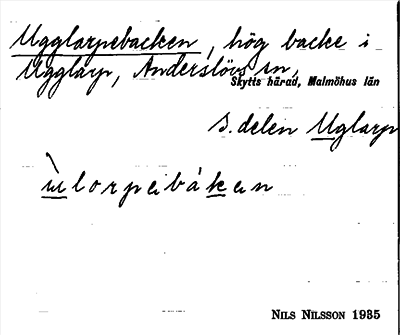 Ugglarpebacken, hög backe i
Ugglarp, Anderslövs sn,
Skytts härad, Malmöhus län
s. delen Uglarp
ùlorpebåken
NILS NILSSON 1935